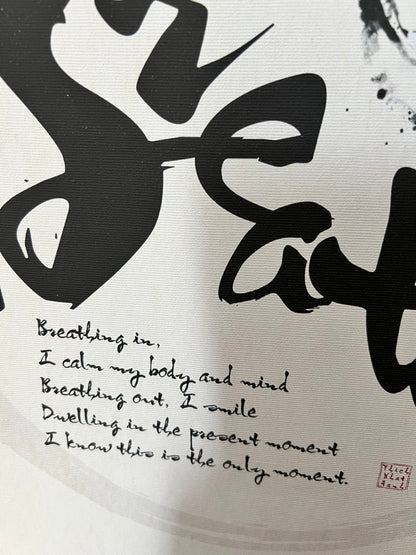 Breathing in,
I calm my body and mind
Breathing out, I smile
Dwelling in the present moment
I know this is the only moment.
Thich
Nhat
Hanh